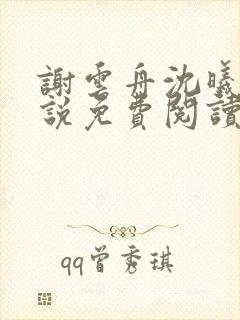 謝雲舟沈曦
說免費閱讀
qq曾秀琪